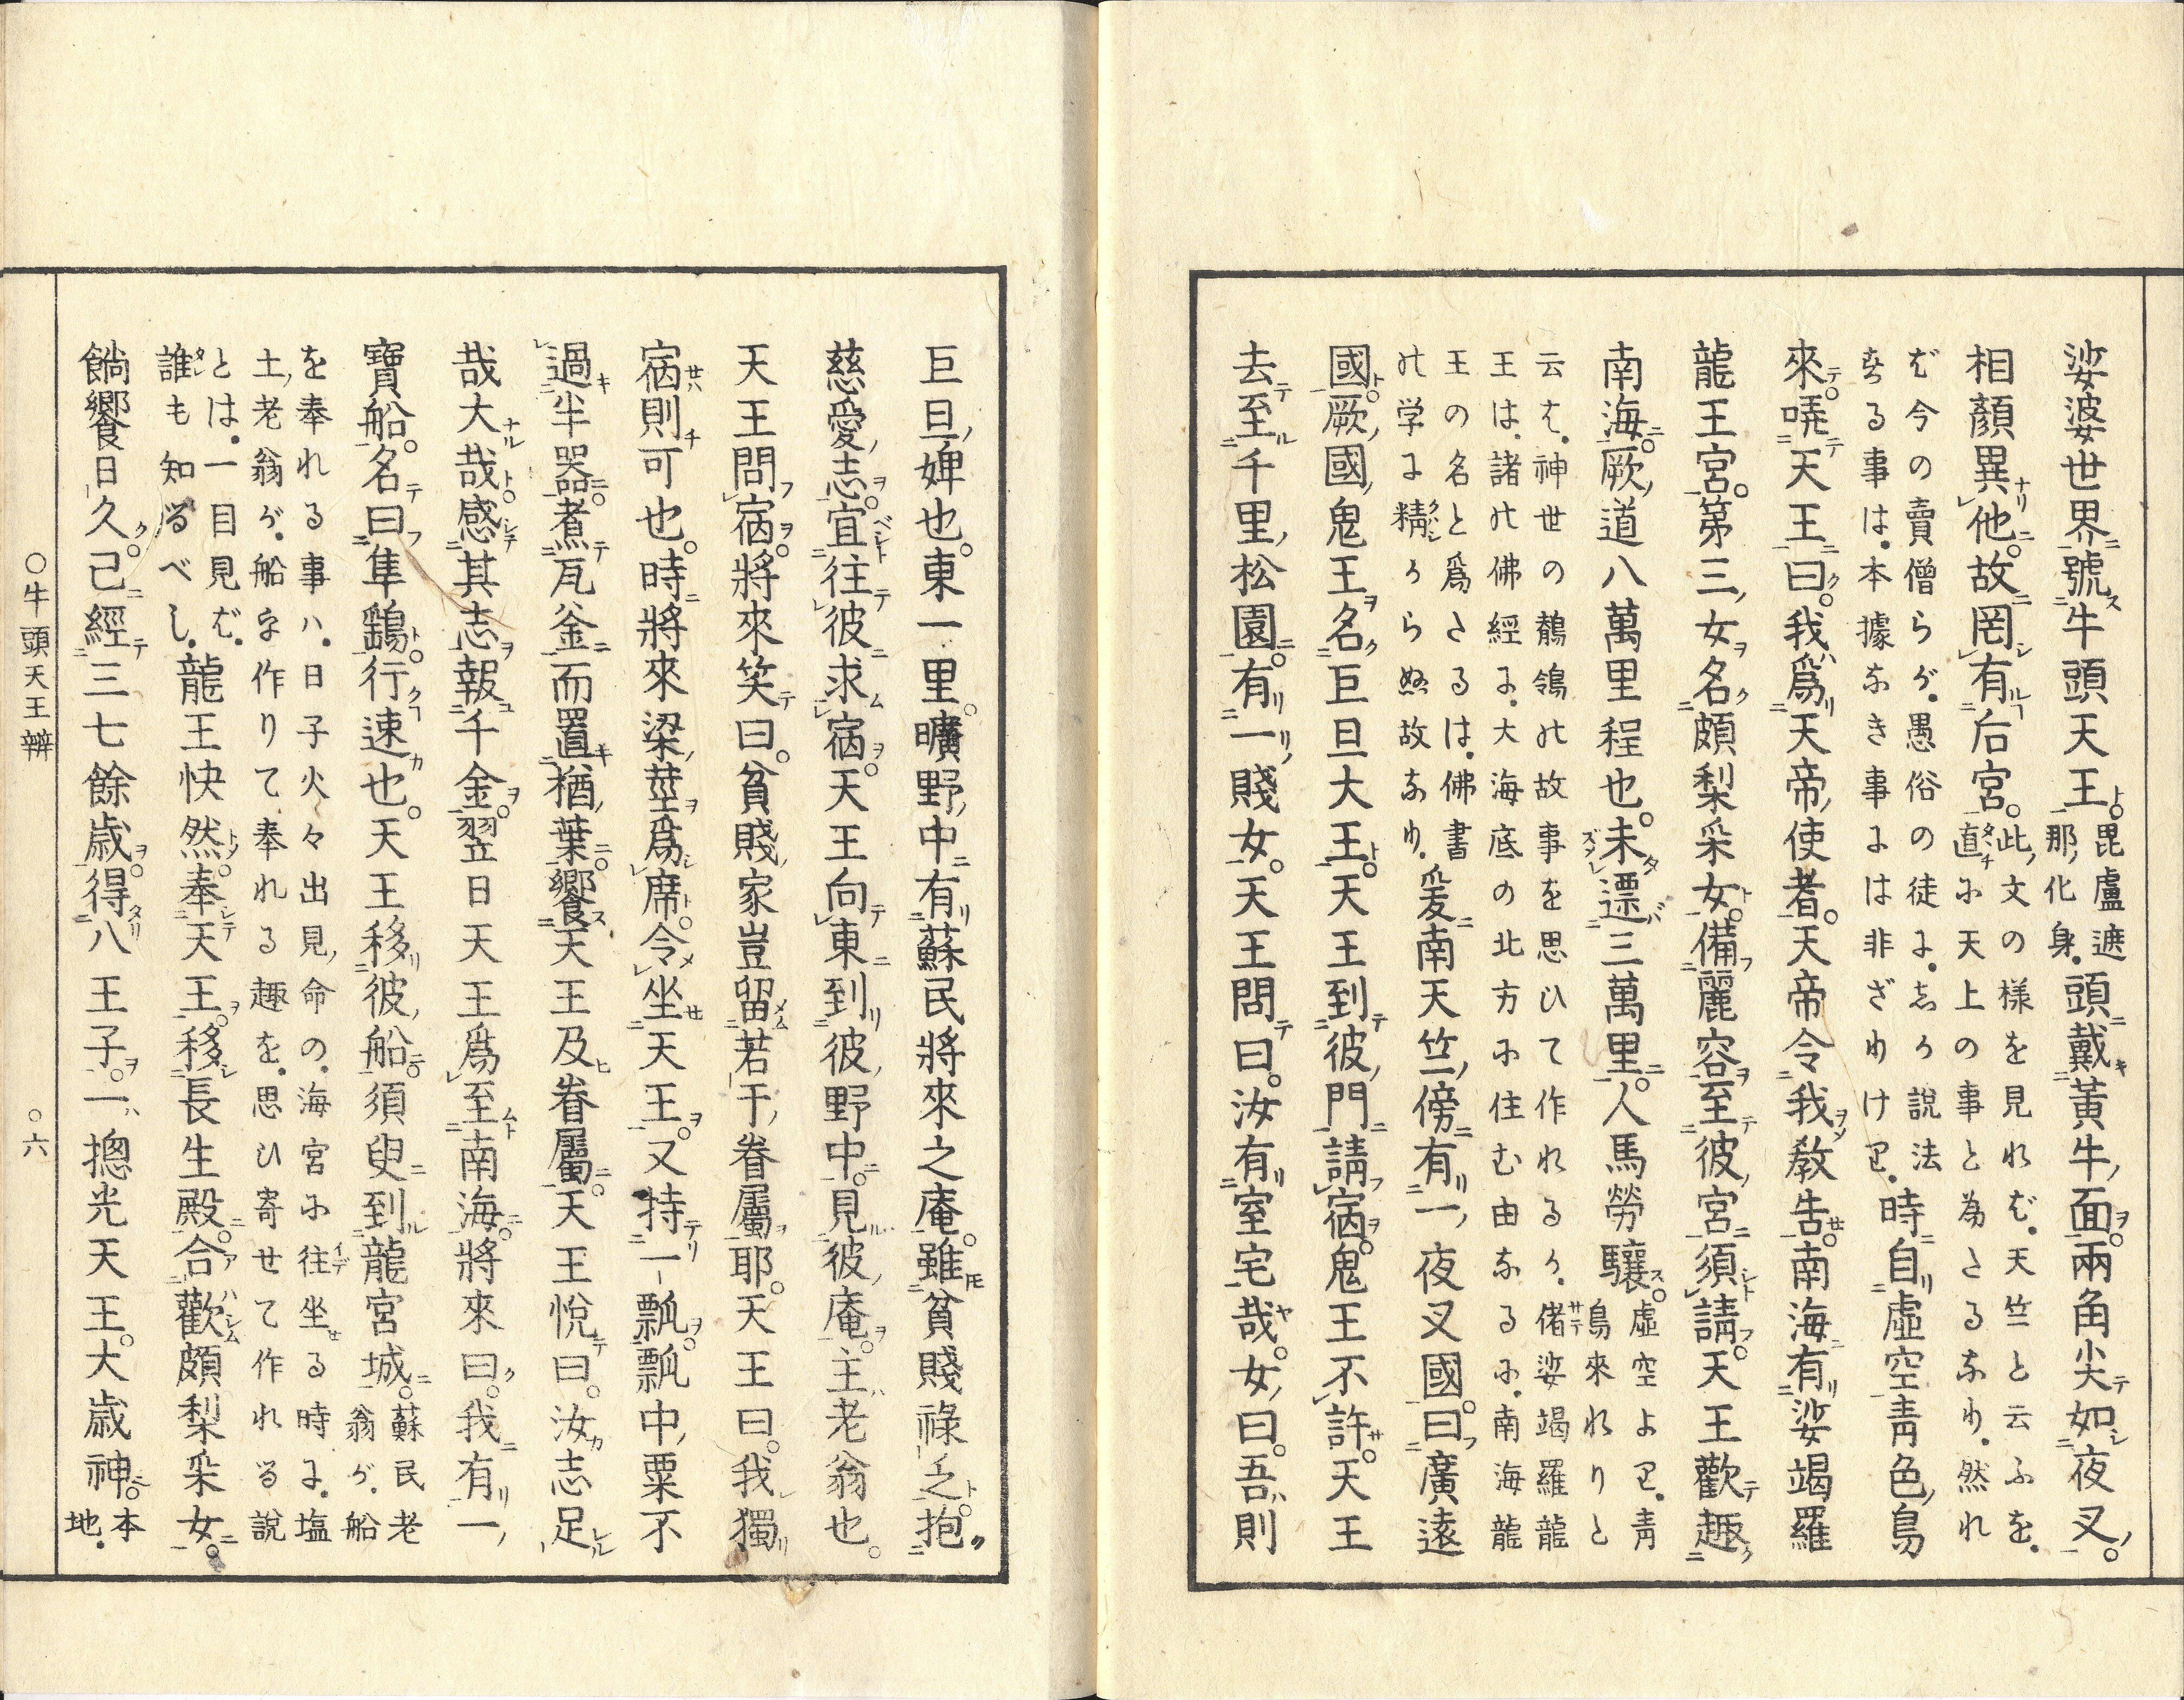 娑婆世界號牛頭天王。毘盧遮那化身。頭戴黃牛面。兩角尖如夜叉。
相顏異他。故罔有后宮。此文の様を見れば。天竺と云ふを。直に天上の事と為たるなり。然れ
ば今の賣僧らが。愚俗の徒に。志か説法
する事は。本據なき事には非ざりけり。時自虛空靑色鳥
來。嘵天王曰。我爲天帝使者。天帝令我敎告。南海有娑竭羅
龍王宮。第三女名頗梨采女。備麗容至彼宮須請。天王歡趣
南海。厥道八萬里程也。未遝三萬里。人馬勞驤。虛空より。靑鳥來れりと
云は。神世の鶺鴒の故事を思ひて作れるか。偖娑竭羅龍
王は。諸の佛經に。大海底の北方に住む由なるに。南海龍
王の名と爲たるは。佛書
の学に精からぬ故なり。爰南天竺傍有一夜叉國。曰廣遠
國。厥國鬼王名巨旦大王。天王到彼門請宿。鬼王不許。天王
去至千里松園。有一賤女。天王問曰。汝有室宅哉。女曰。吾則
巨旦婢也。東一里。曠野中有蘇民將來之庵。雖貧賤祿乏。抱
慈愛志。宜往彼求宿。天王向東到彼野中。見彼庵。主老翁也。
天王問宿。將來笑曰。貧賤家豈留若干眷屬耶。天王曰。我獨
宿則可也。時將來梁莖爲席。令坐天王。又持一瓢。瓢中粟不
過半器。煮瓦釜而置楢葉。饗天王及眷屬。天王悅曰。汝志足
哉大哉。感其志報千金。翌日天王爲至南海。將來曰。我有一
寶船。名曰隼鷂。行速也。天王移彼船。須臾到龍宮城。蘇民老翁が。船
を奉れる事ハ。日子火々出見命の。海宮に往坐る時に。塩
土老翁が。船を作りて奉れる趣を。思ひ寄せて作れる説
とは。一目見ば。
誰も知るべし。龍王快然。奉天王。移長生殿。合歡頗梨采女。
餉饗日久。已經三七餘歳。得八王子。一摠光天王。大歳神。本地。
○牛頭天王辨
○六